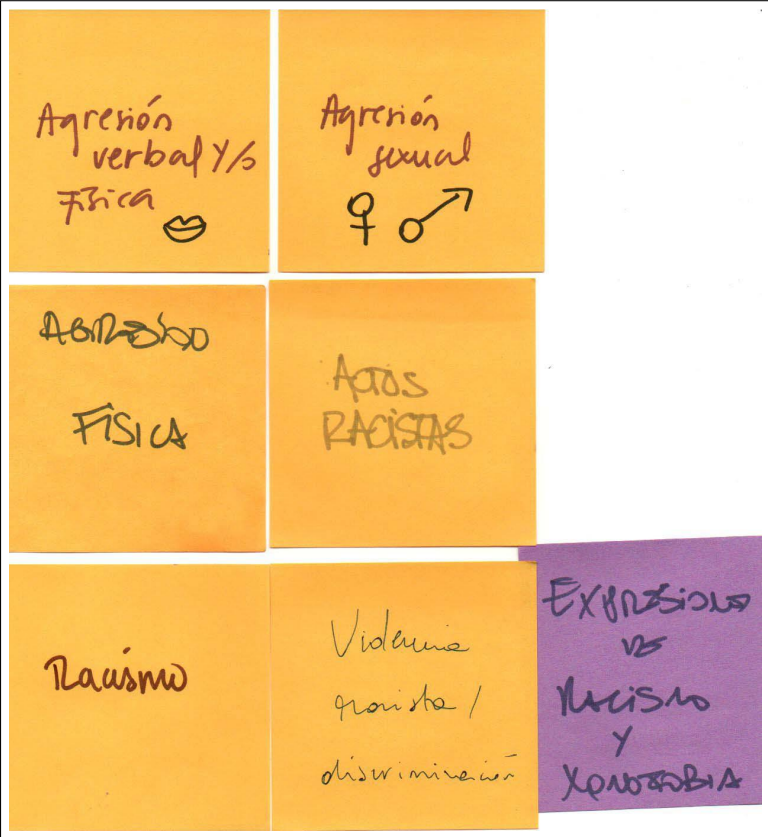 Agresión
verbal y/o
Física
Agresión
sexual
AGRESIÓN
FÍSICA
ACTOS
RACISTAS
Racismo
Violencia
racista /
discriminación
EXPRESIONES
DE
RACISMO
Y
XENOFOBIA